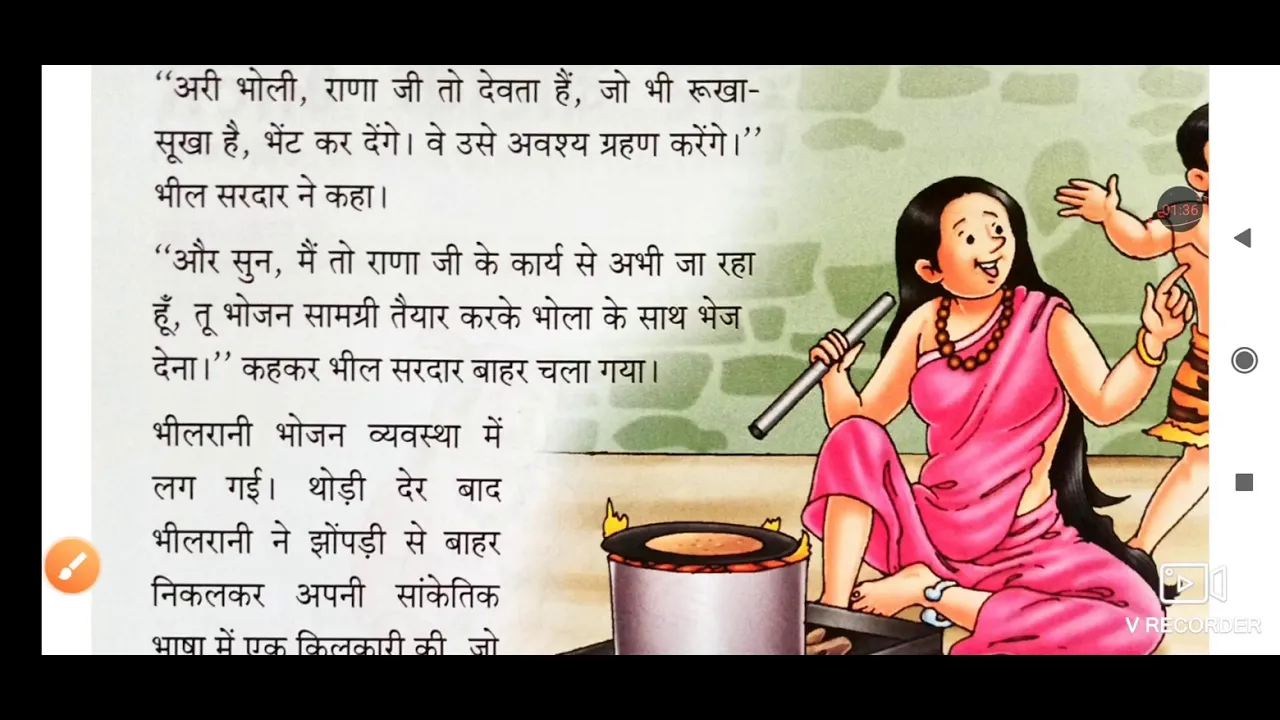 “अरी भोली, राणा जी तो देवता हैं, जो भी रूखा-
सूखा है, भेंट कर देंगे। वे उसे अवश्य ग्रहण करेंगे।”
भील सरदार ने कहा।
“और सुन, मैं तो राणा जी के कार्य से अभी जा रहा
हूँ, तू भोजन सामग्री तैयार करके भोला के साथ भेज
देना।” कहकर भील सरदार बाहर चला गया।
भीलरानी भोजन व्यवस्था में
लग गई। थोड़ी देर बाद
भीलरानी ने झोंपड़ी से बाहर
निकलकर अपनी सांकेतिक
भाषा में एक किलकारी की, जो
01:36
V RECORDER